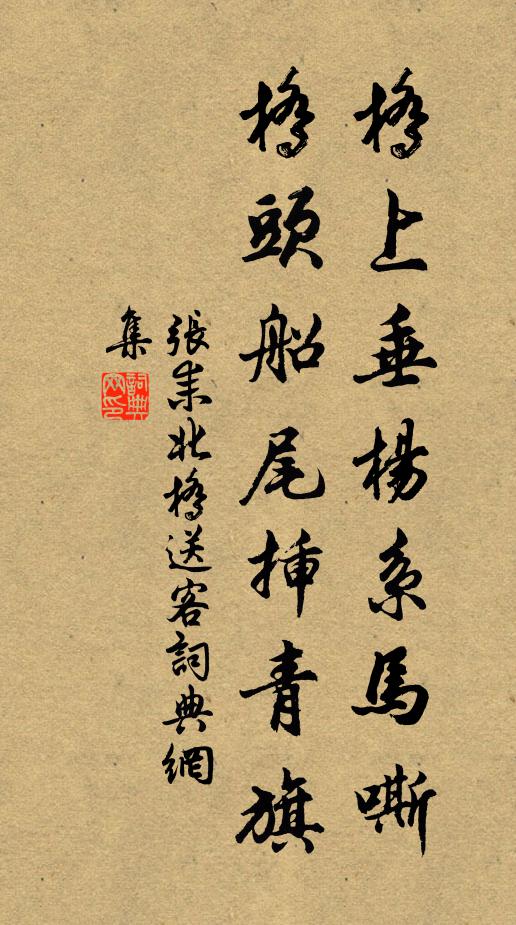 橋上垂楊系馬嘶
橋頭船尾插青旗
張耒北橋送客詞典網
集
詞典網印